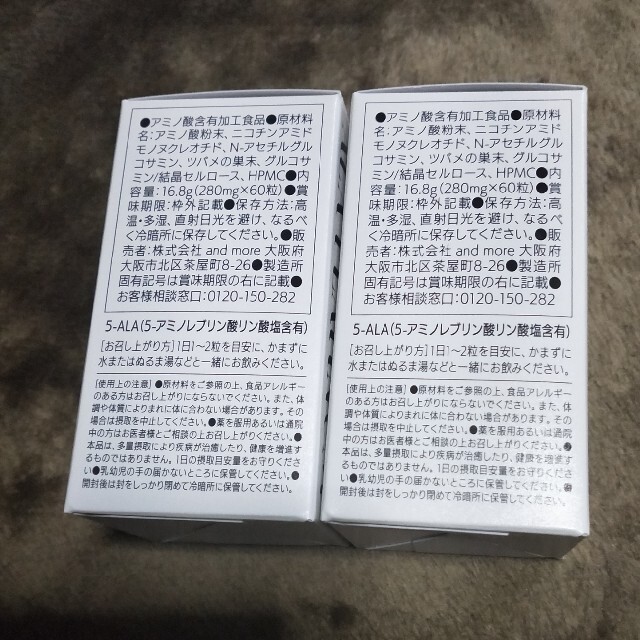 ●アミノ酸含有加工食品●原材料
名:アミノ酸粉末、ニコチンアミド
モノヌクレオチド、N-アセチルグル
コサミン、ツバメの巣末、グルコサ
ミン/結晶セルロース、HPMC●内
容量:16.8g(280mg×60粒)●賞
味期限:枠外記載●保存方法:高
温・多湿、直射日光を避け、なるべ
く冷暗所に保存してください。●販
売者:株式会社 and more 大阪府
大阪市北区茶屋町8-26●製造所
固有記号は賞味期限の右に記載●
お客様相談窓口:0120-150-282
5-ALA(5-アミノレブリン酸リン酸塩含有)
[お召し上がり方]1日1〜2粒を目安に、かまずに
水またはぬるま湯などと一緒にお飲みください。
[使用上の注意]●原材料をご参照の上、食品アレルギー
のある方はお召し上がりにならないでください。また、体
調や体質によりまれに体に合わない場合があります。その
場合は摂取を中止してください。●薬を服用あるいは通院
中の方はお医者様とご相談の上お召し上がりください。●
本品は、多量摂取により疾病が治癒したり、健康を増進す
るものではありません。1日の摂取目安量をお守りくださ
い●乳幼児の手の届かないところに保管してください。●
開封後は封をしっかり閉めて冷暗所に保管してください。
●アミノ酸含有加工食品●原材料
名:アミノ酸粉末、ニコチンアミド
モノヌクレオチド、N-アセチルグル
コサミン、ツバメの巣末、グルコサ
ミン/結晶セルロース、HPMC●内
容量:16.8g(280mg×60粒)●賞
味期限:枠外記載●保存方法:高
温・多湿、直射日光を避け、なるべ
く冷暗所に保存してください。●販
売者:株式会社 and more 大阪府
大阪市北区茶屋町8-26●製造所
固有記号は賞味期限の右に記載●
お客様相談窓口:0120-150-282
5-ALA(5-アミノレブリン酸リン酸塩含有)
[お召し上がり方]1日1〜2粒を目安に、かまずに
水またはぬるま湯などと一緒にお飲みください。
[使用上の注意]●原材料をご参照の上、食品アレルギー
のある方はお召し上がりにならないでください。また、体
調や体質によりまれに体に合わない場合があります。その
場合は摂取を中止してください。●薬を服用あるいは通院
中の方はお医者様とご相談の上お召し上がりください。●
本品は、多量摂取により疾病が治癒したり、健康を増進す
るものではありません。1日の摂取目安量をお守りくださ
い●乳幼児の手の届かないところに保管してください。●
開封後は封をしっかり閉めて冷暗所に保管してください。